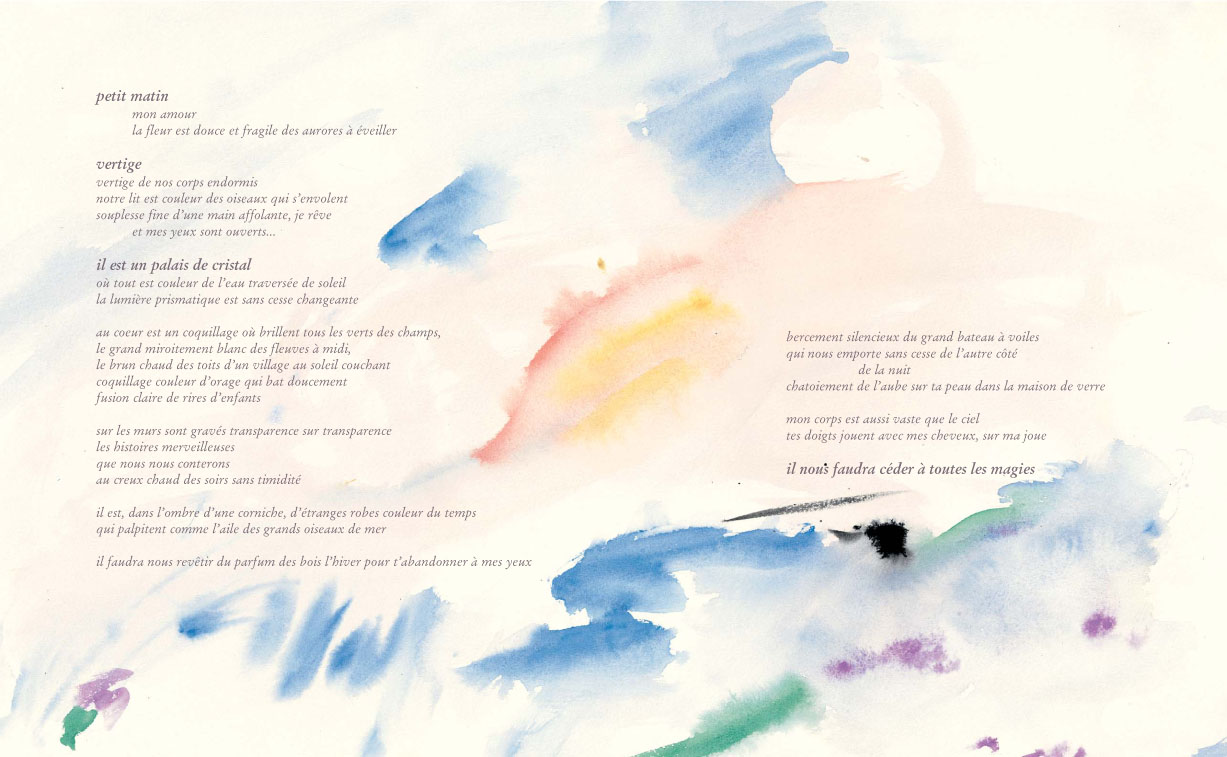 petit matin
mon amour
la fleur est douce et fragile des aurores à éveiller
vertige
vertige de nos corps endormis
notre lit est couleur des oiseaux qui s'envolent
souplesse fine d'une main affolante, je rêve
et mes yeux sont ouverts...
il est un palais de cristal
où tout est couleur de l'eau traversée de soleil
la lumière prismatique est sans cesse changeante
au coeur est un coquillage où brillent tous les verts des champs,
le grand miroitement blanc des fleuves à midi,
le brun chaud des toits d'un village au soleil couchant
coquillage couleur d'orage qui bat doucement
fusion claire de rires d'enfants
sur les murs sont gravés transparence sur transparence
les histoires merveilleuses
que nous nous conterons
au creux chaud des soirs sans timidité
il est, dans l'ombre d'une corniche, d'étranges robes couleur du temps
qui palpitent comme l'aile des grands oiseaux de mer
il faudra nous revêtir du parfum des bois l'hiver pour t'abandonner à mes yeux
bercement silencieux du grand bateau à voiles
qui nous emporte sans cesse de l'autre côté
de la nuit
chatoiement de l'aube sur ta peau dans la maison de verre
mon corps est aussi vaste que le ciel
tes doigts jouent avec mes cheveux, sur ma joue
il nous faudra céder à toutes les magies